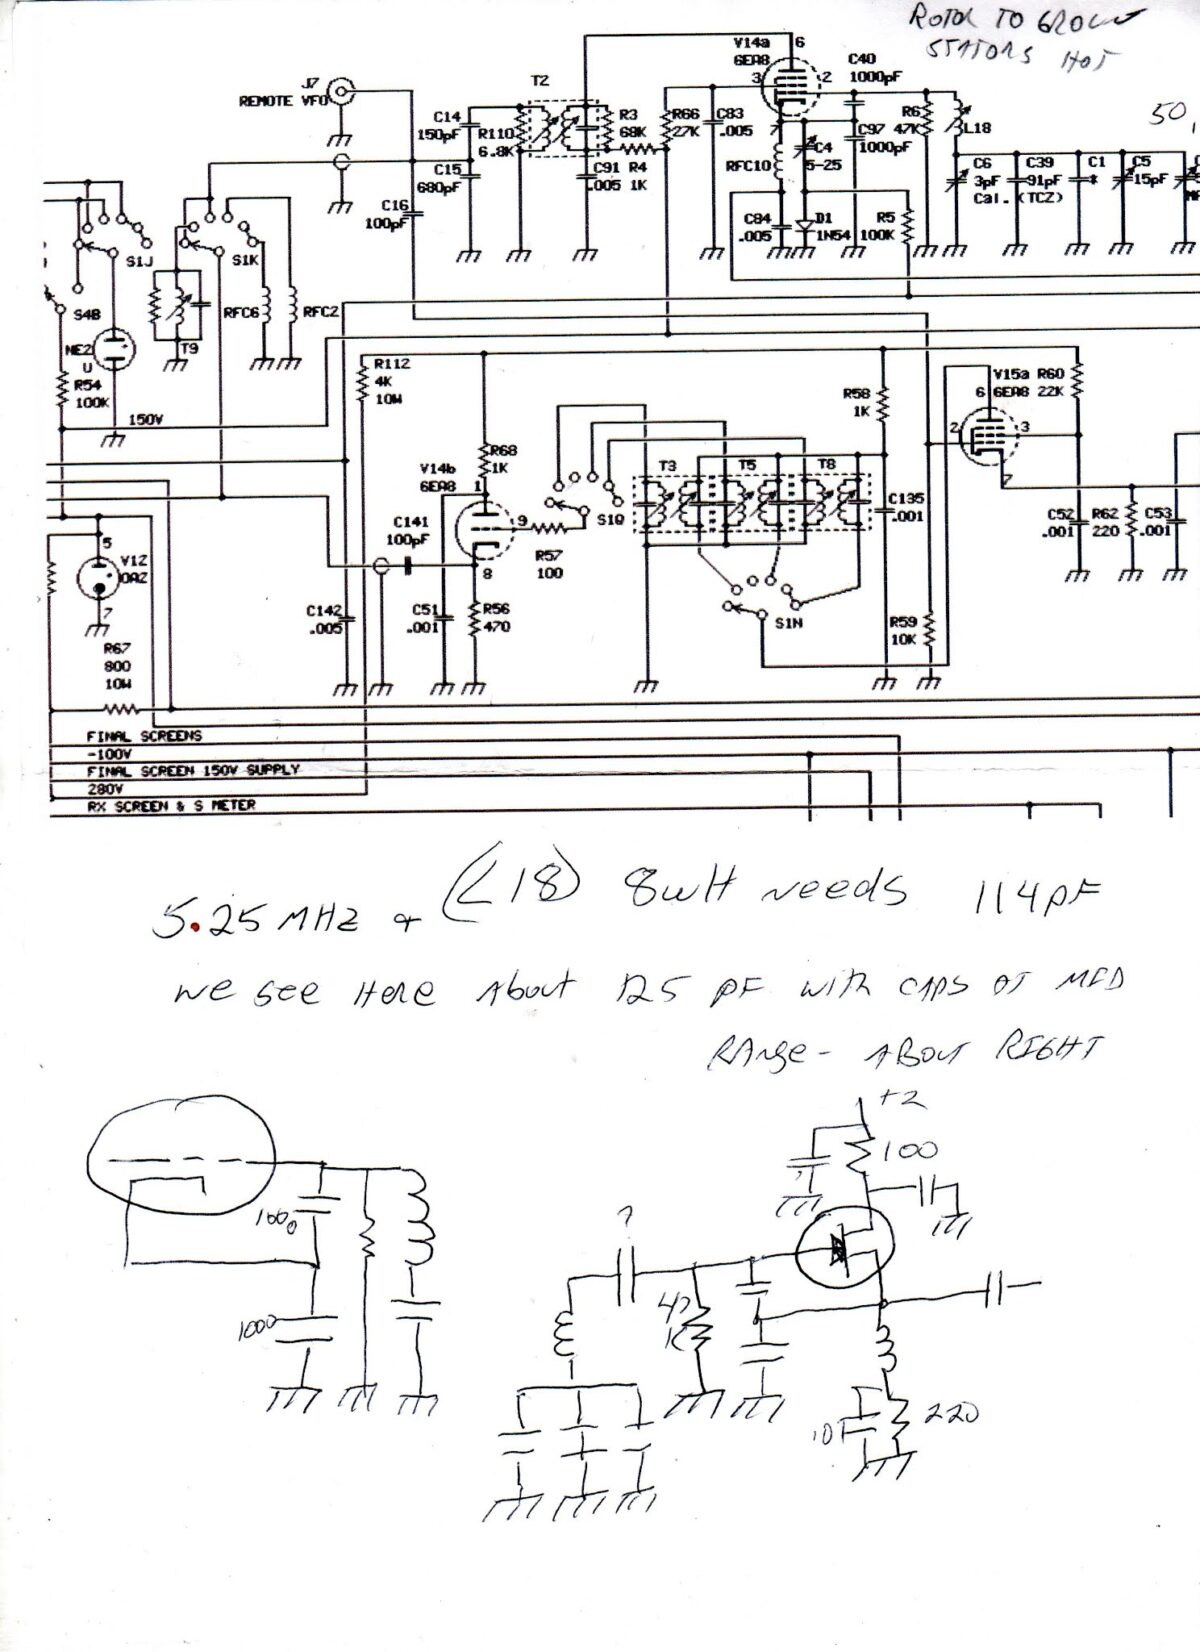 ROTOR TO GROUN
STATORS HOT
50,
J7
REMOTE VFO
T2
V14a
6EA8
6
3
2
7
C40
1000pF
C14
150pF
R110
6.8K
R3
68K
R66
27K
C83
.005
R6
47K
L18
C97
1000pF
C4
5-25
RFC10
C15
680pF
C91
.005
R4
1K
C16
100pF
C84
.005
D1
1N54
R5
100K
C6
3pF
Cal.
C39
91pF
(TCZ)
C1
*
C5
15pF
S1J
S1K
S4B
RFC6
RFC2
T9
NE2
U
R54
100K
150V
R112
4K
10W
R68
1K
V14b
6EA8
1
9
8
R58
1K
V15a
6EA8
6
2
3
7
R60
22K
T3
T5
T8
S1Q
R57
100
C141
100pF
C135
.001
C52
.001
R62
220
C53
.001
5
V12
OA2
7
C142
.005
C51
.001
R56
470
S1N
R59
10K
R67
800
10W
FINAL SCREENS
-100V
FINAL SCREEN 150V SUPPLY
280V
RX SCREEN & S METER
5.25 MHz + (L18) 8uH needs 114pF
we see Here About 125 pF with caps at MID
RAnge - ABout RIGHT
+2
100
1000
1000
?
47
K
.01
220